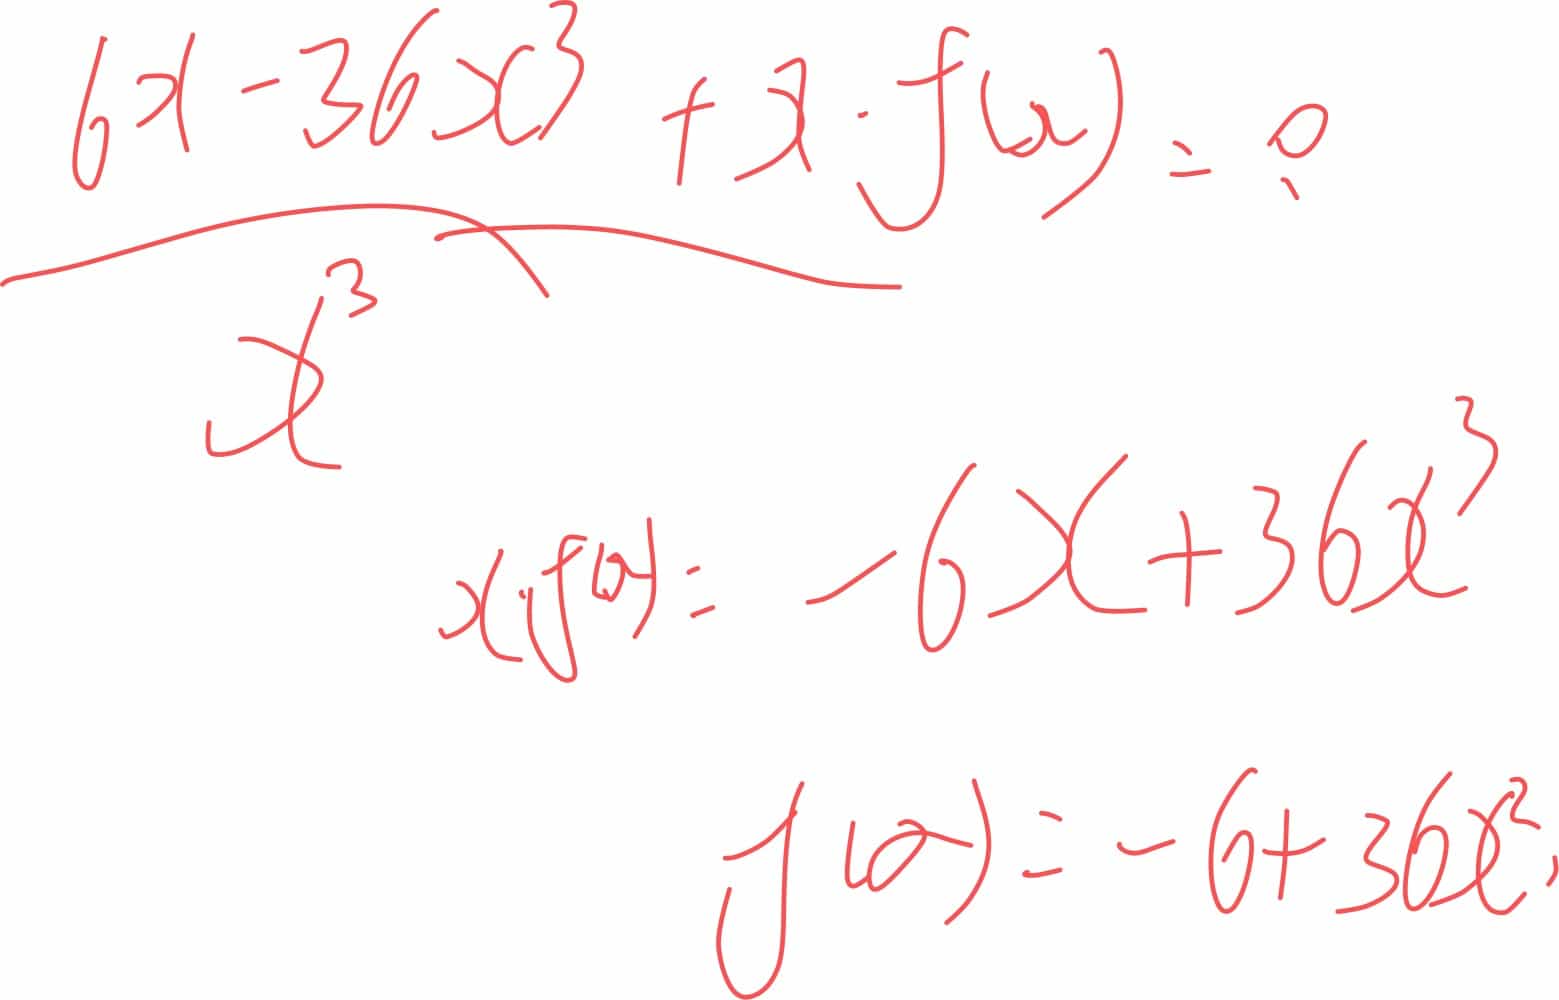 6x - 36x³ + x · f(x) = 0
x³
x · f(x) = - 6x + 36x³
f(x) = - 6 + 36x²,